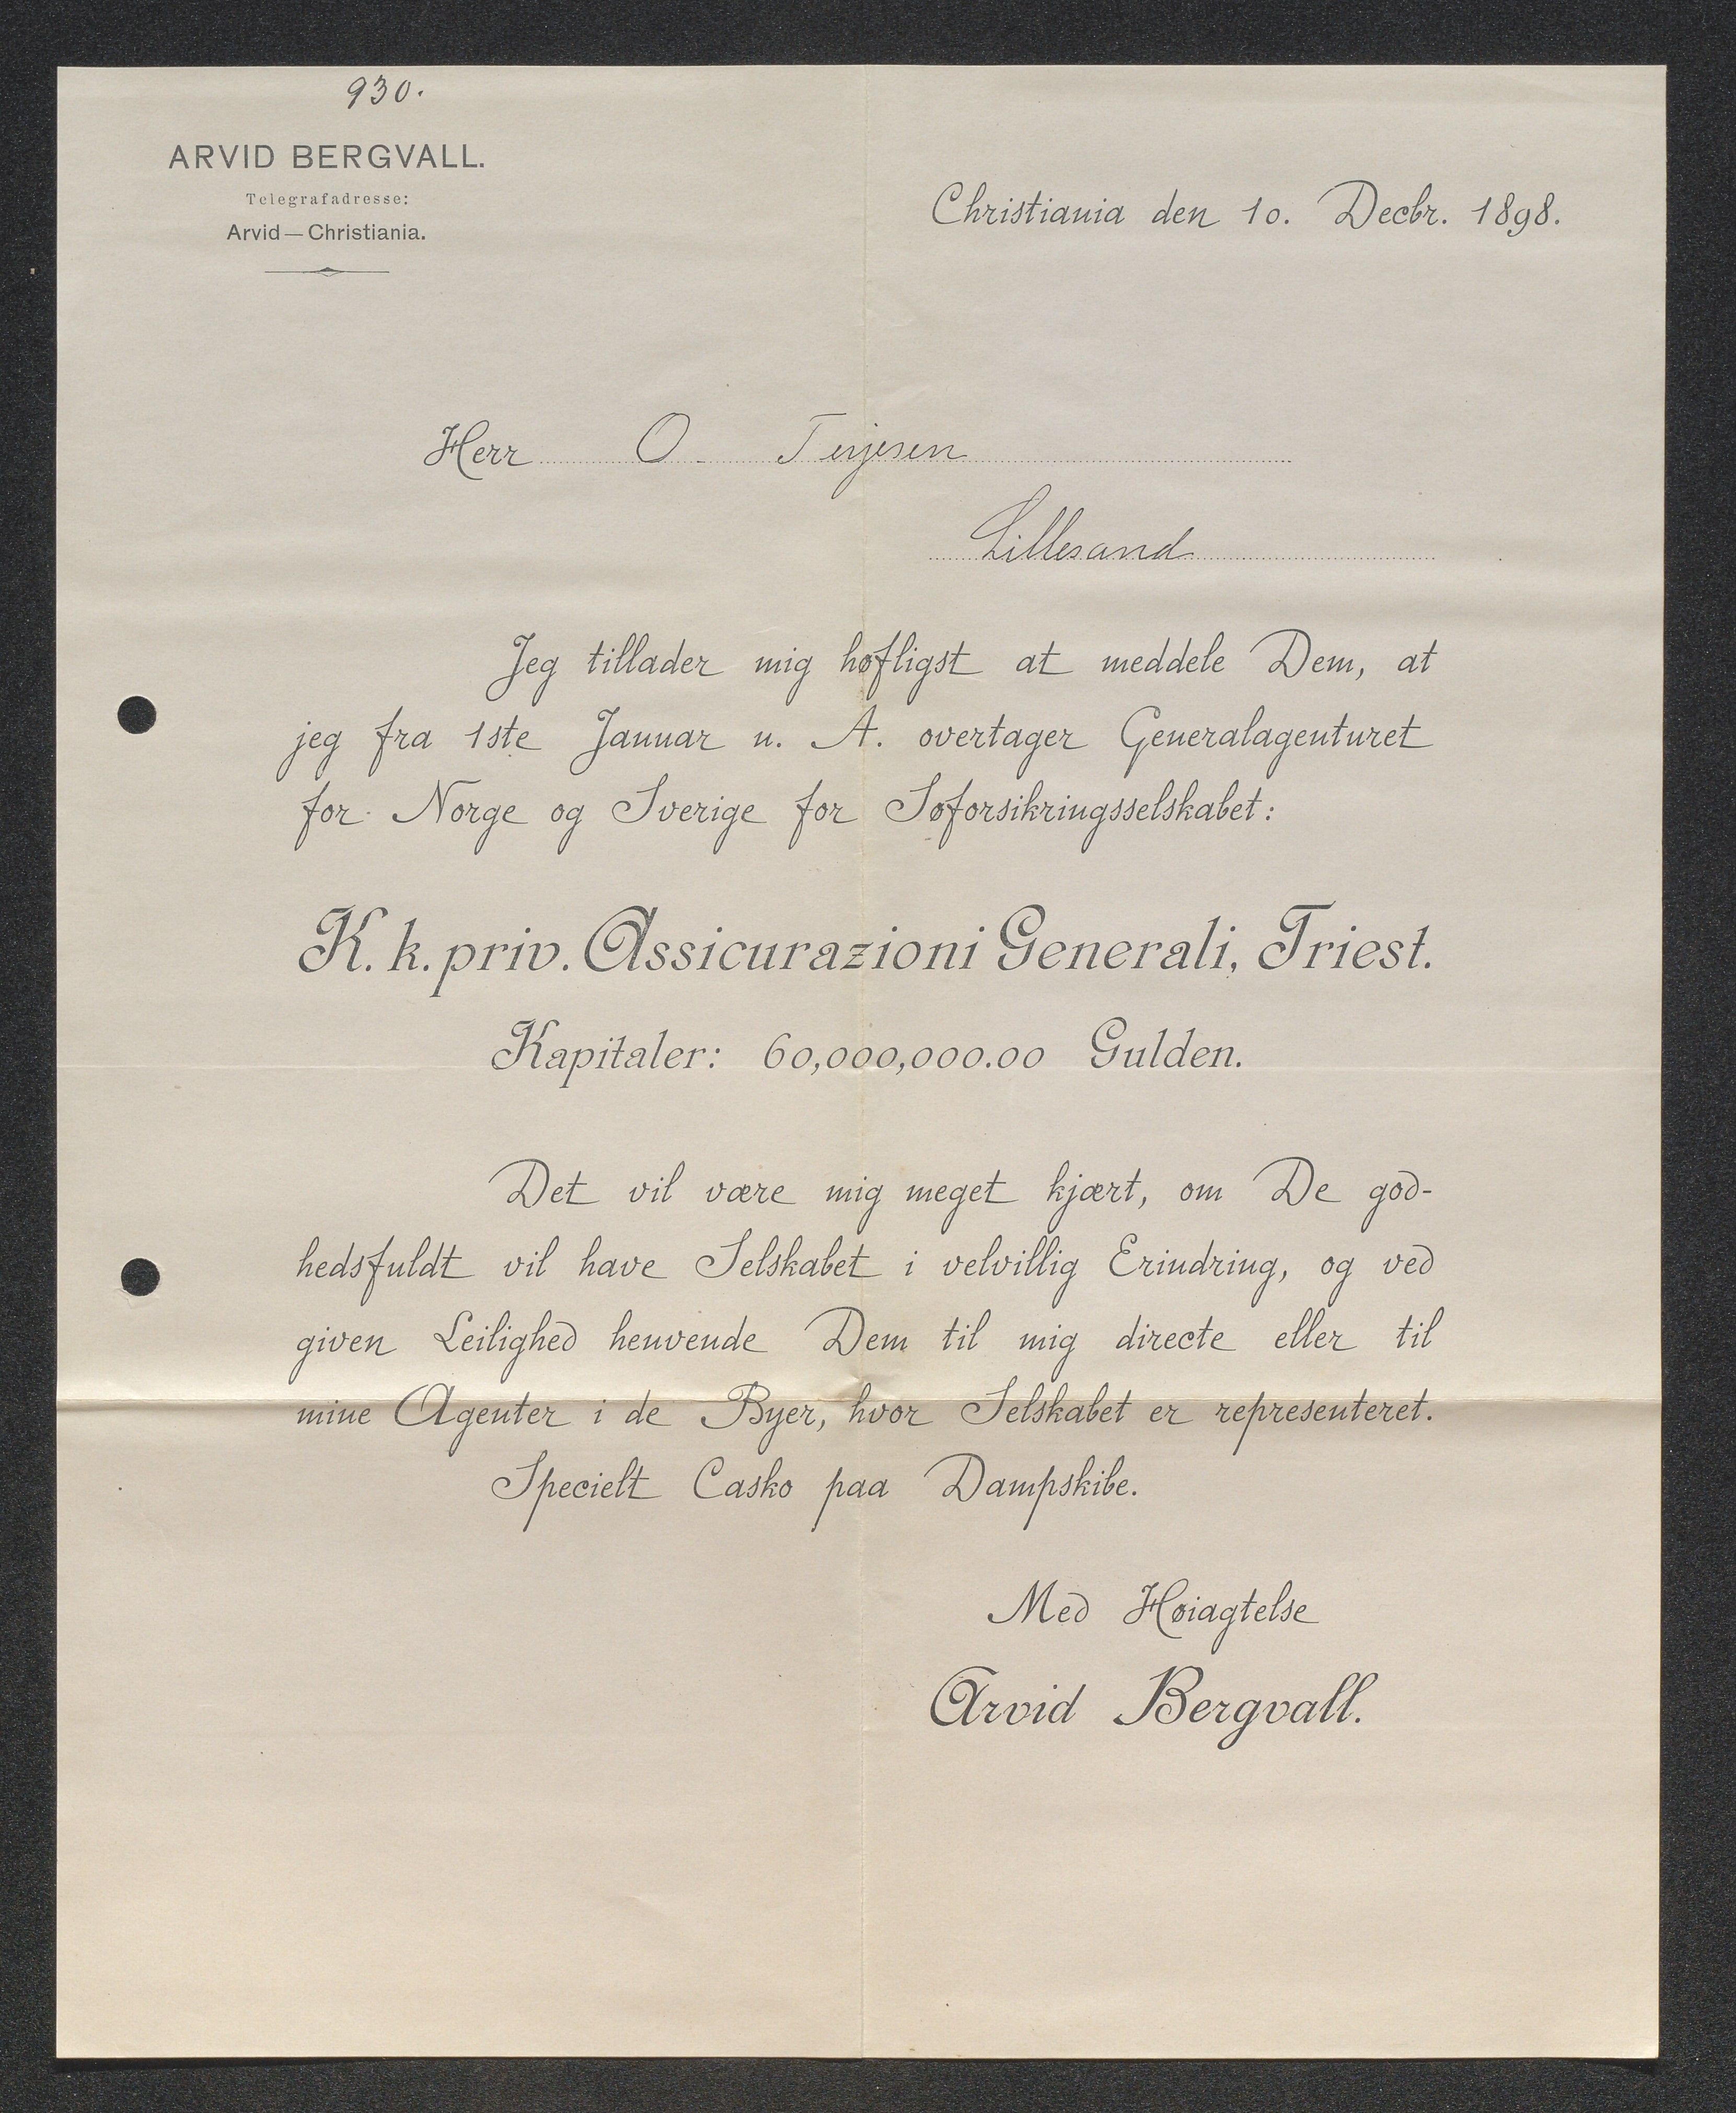 930.
ARVID BERGVALL.
Telegrafadresse:
Arvid—Christiania.
Christiania den 10. Decbr. 1898.
Herr O. Terjesen
Lillesand
Jeg tillader mig høfligst at meddele Dem, at
jeg fra 1ste Januar n. A. overtager Generalagenturet
for Norge og Sverige for Søforsikringsselskabet:
K. k. priv. Assicurazioni Generali, Triest.
Kapitaler: 60,000,000.00 Gulden.
Det vil være mig meget kjært, om De god-
hedsfuldt vil have Selskabet i velvillig Erindring, og ved
given Leilighed henvende Dem til mig directe eller til
mine Agenter i de Byer, hvor Selskabet er representeret.
Specielt Casko paa Dampskibe.
Med Høiagtelse
Arvid Bergvall.